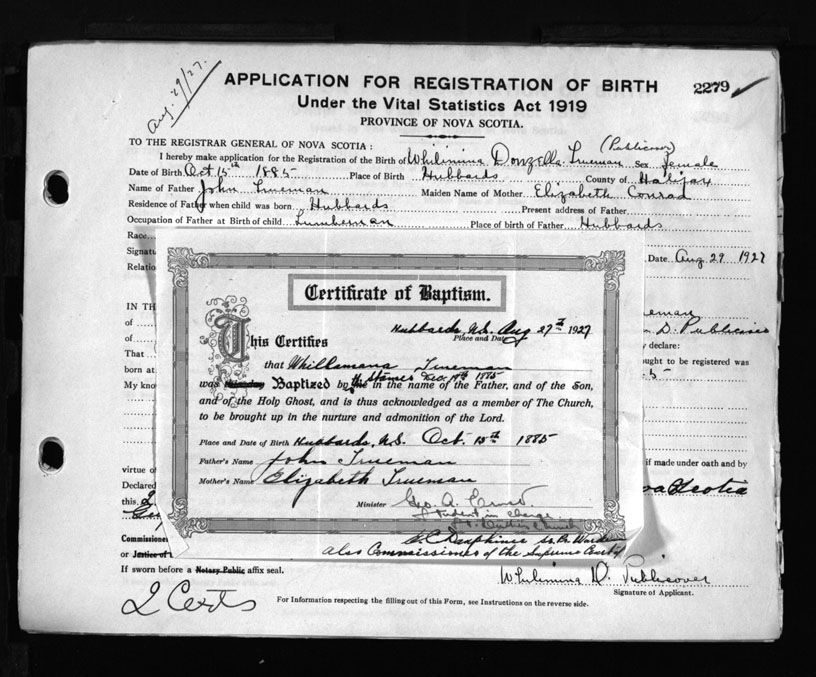 Aug. 29/27.
APPLICATION FOR REGISTRATION OF BIRTH
2279
Under the Vital Statistics Act 1919
PROVINCE OF NOVA SCOTIA.
TO THE REGISTRAR GENERAL OF NOVA SCOTIA :
(Publicover)
I hereby make application for the Registration of the Birth of Whilimina Donzella Trueman Sex female
Date of Birth Oct 15th 1885 Place of Birth Hubbards County of Halifax
Name of Father John Trueman Maiden Name of Mother Elizabeth Conrad
Residence of Father when child was born Hubbards Present address of Father
Occupation of Father at Birth of child Lumberman Place of birth of Father Hubbards
Race
Signatu Date Aug 29 1927
Relatio
IN TH eman
of D. Publicover
of y declare:
That ought to be registered was
born at 5
My kno
Certificate of Baptism.
Hubbards, N.S. Aug 27th 1927
Place and Date
This Certifies
that Whillemana Trueman
was Baptized by in the name of the Father, and of the Son,
and of the Holy Ghost, and is thus acknowledged as a member of The Church,
to be brought up in the nurture and admonition of the Lord.
Place and Date of Birth Hubbards, N.S. Oct. 15th 1885
Father's Name John Trueman
Mother's Name Elizabeth Trueman
Minister Geo. A.
Student in charge
virtue of if made under oath and by
Declared ova Scotia
this
Commissione
or Justice of t also Commissioner of the Supreme Court
If sworn before a Notary Public affix seal.
Whilimina D. Publicover
Signature of Applicant.
2 Certs
For Information respecting the filling out of this Form, see Instructions on the reverse side.